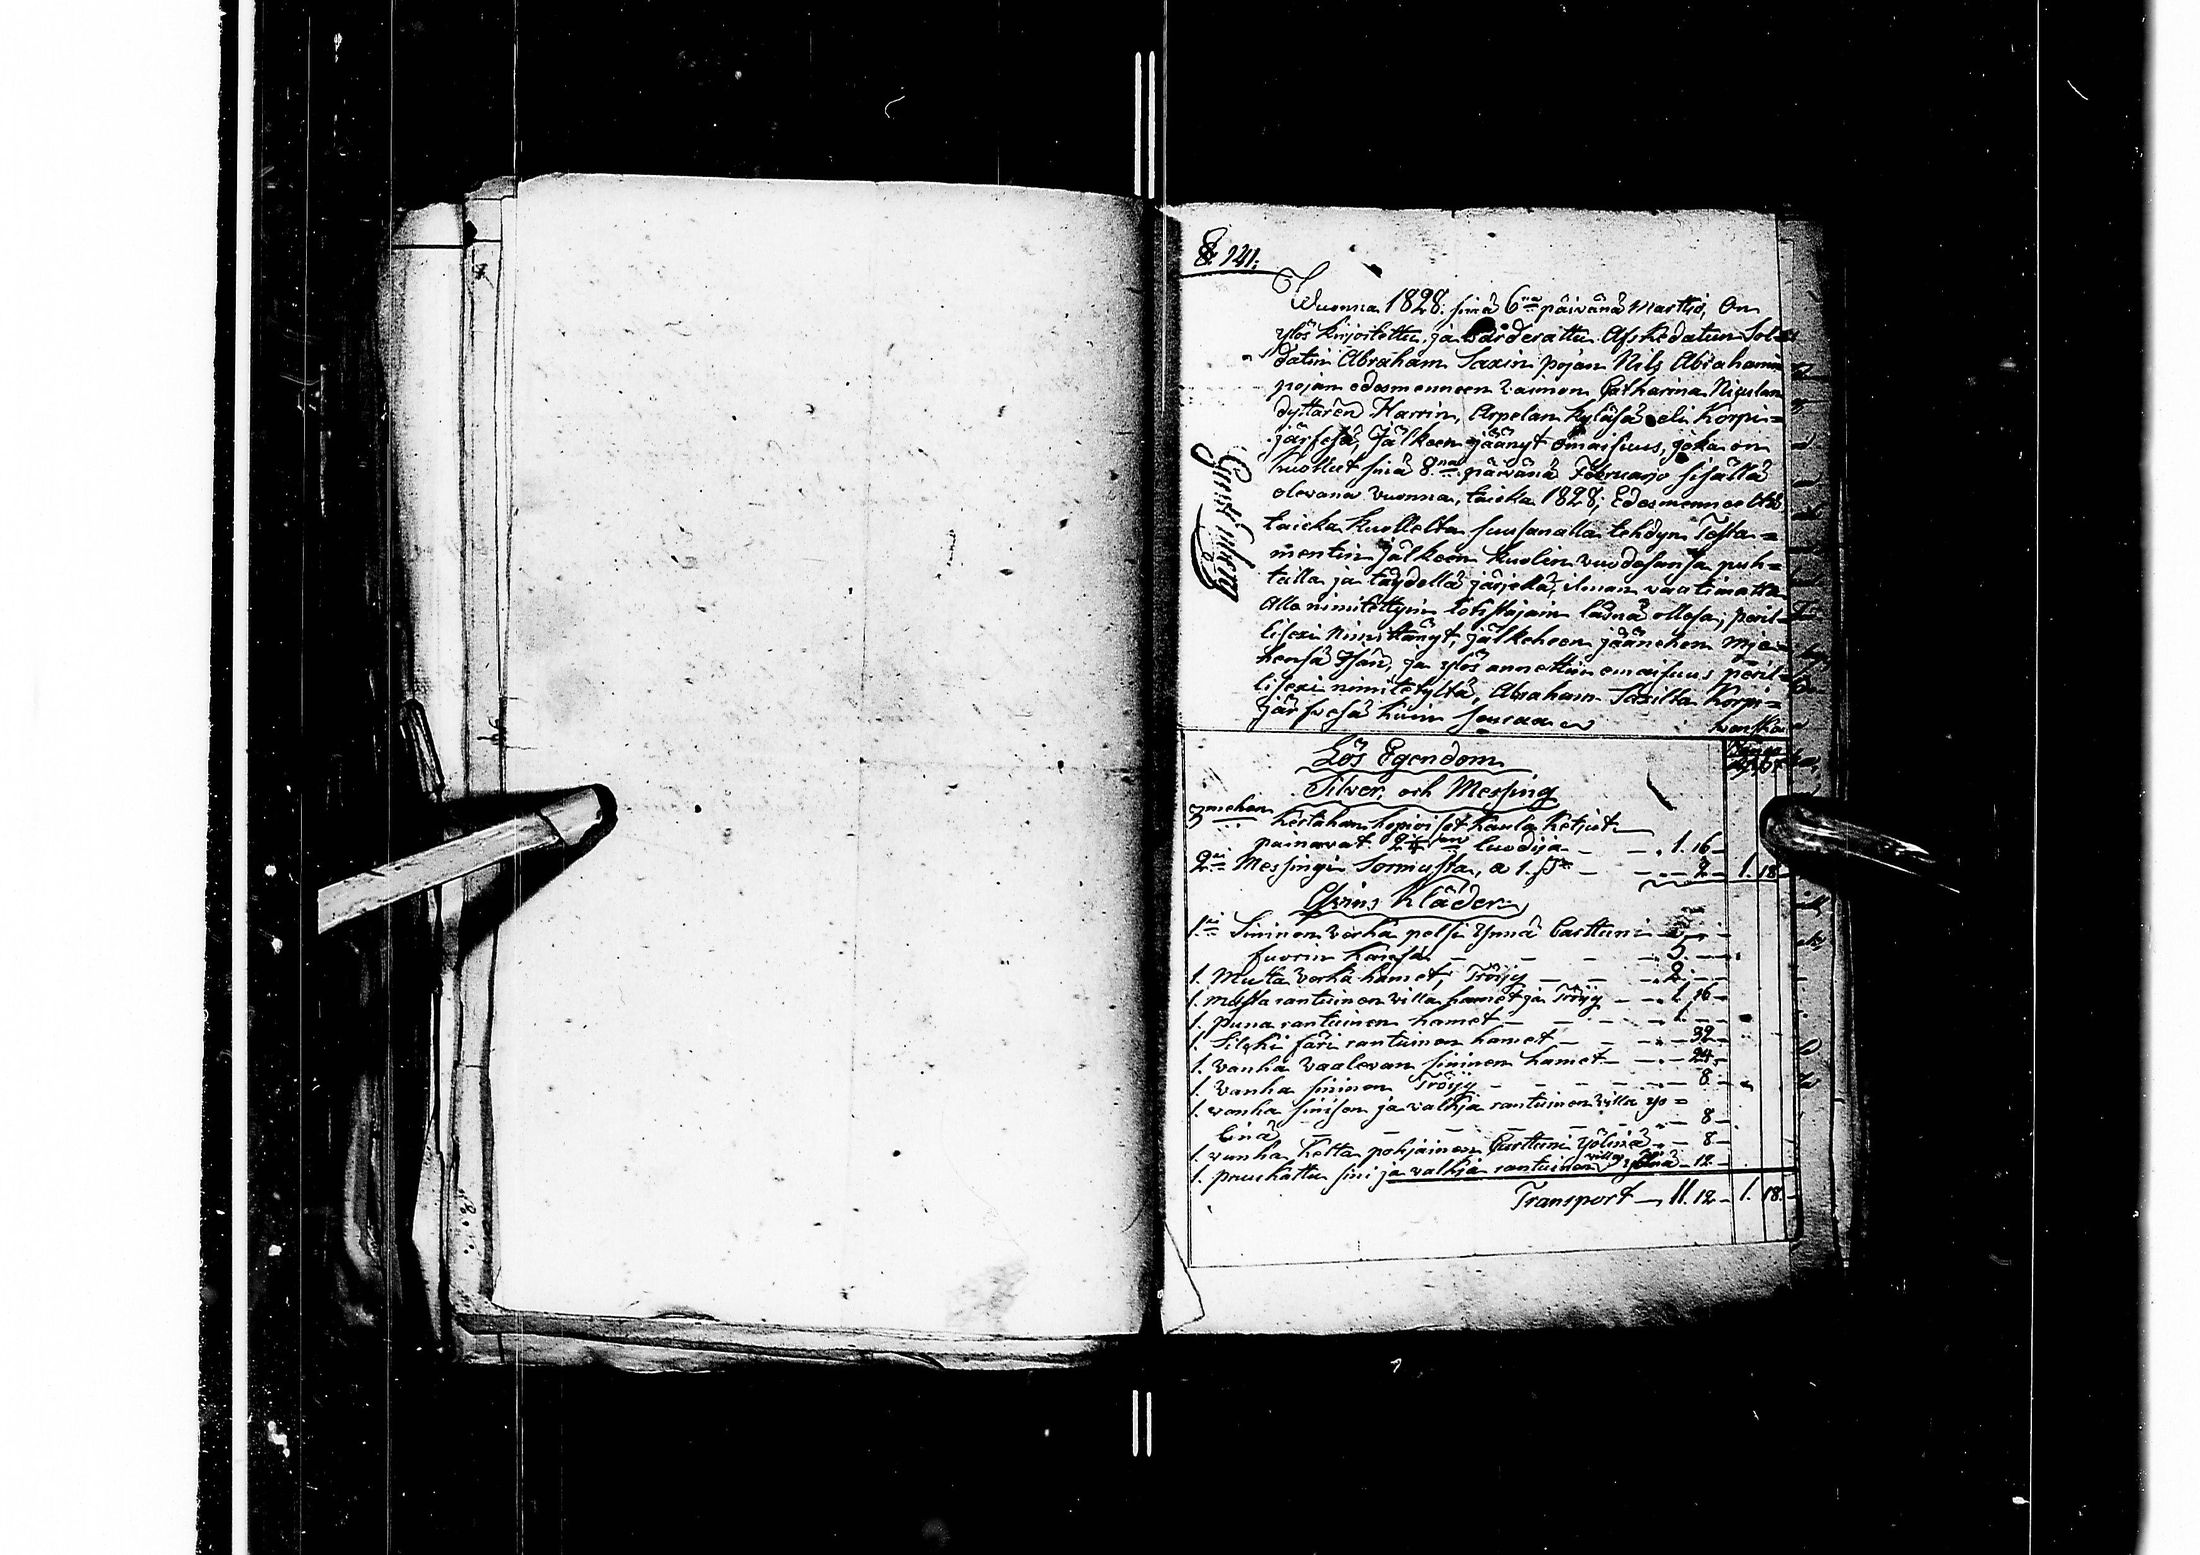 & 141.
Wuonna 1828. sinä 6na päivänä Martij, On
ylös kirjoitettu, ja Wärderattu Afskedatun Sol=
datin Abraham Saxin pojan Nils Abrahamin
pojan edesmenneen vaimon Catharina Nigulan
dyttären Harrin, Arpelan kyläsä eli Korpi=
järfesä, Jälkeen jäänyt omaisuus, joka on
kuollut sinä 8na päivänä Februarjo sisällä
olevana vuonna, taicka 1828; Edesmenneeltä
taicka kuollelta suusanalla tehdyn Testa=
mentin jälkeen kuolin vuodesansa puh=
talla ja täydellä järjeltä, ilman vaatimatta
Alla nimitettyin todistajain läsnä ollesa, peril=
lisexi Nimittänyt, jälkehen jäänehen Mie=
hensä Hän, ja ylös annettiin omaisuus peril=
lisexi nimitetyltä, Abraham Saxilta Korpi=
järfvesä kuin seuraa
Lös Egendom
Silver, och Messing
kertahan hopioiset kaula ketjut
painavat 2 luodija - - 1. 16 -
2. Messingi Sormusta, a 1. - - 2 - 1. 18
Qvins Kläder
1. Sininen verka pelsi Ynnä Carttuni
fuorin kansa - - - 5. -
1. Musta verka hamet, Tröijy - - 2. -
1. musta rantuinen villa hamet ja Tröijy - 1. 16 -
1. puna rantuinen hamet - - - 1. -
1. Silcki säri rantuinen hamet - - 32 -
1. vanha vaalevan sininen hamet - - 24 -
1. vanha sininen Tröijy - - - 8 -
1. vanha sinisen ja valkja rantuinen villa yö=
linä - - - 8 -
1. vanha kelta pohjainen Carttuni yölinä - 8 -
1. pruukattu sini ja valkja rantuinen villa yölinä - 12 -
Transport - 11. 12 - 1. 18. -